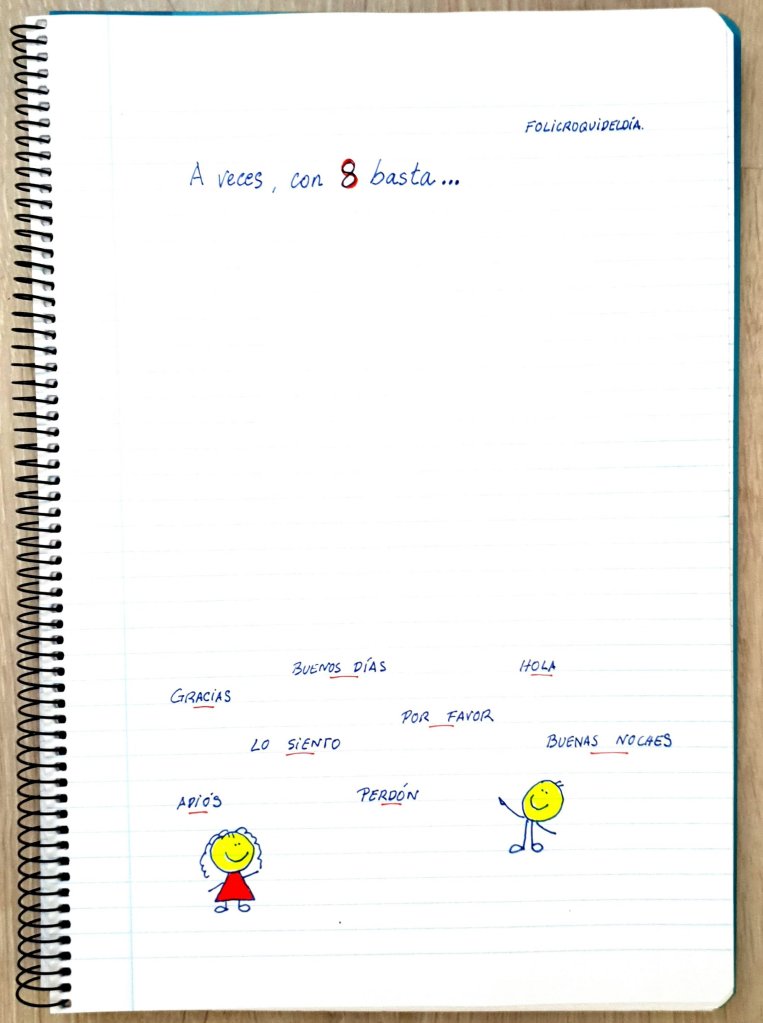 FOLICROQUIDELDÍA.
A veces, con 8 basta...
BUENOS DÍAS
HOLA
GRACIAS
POR FAVOR
LO SIENTO
BUENAS NOCHES
ADIÓS
PERDÓN